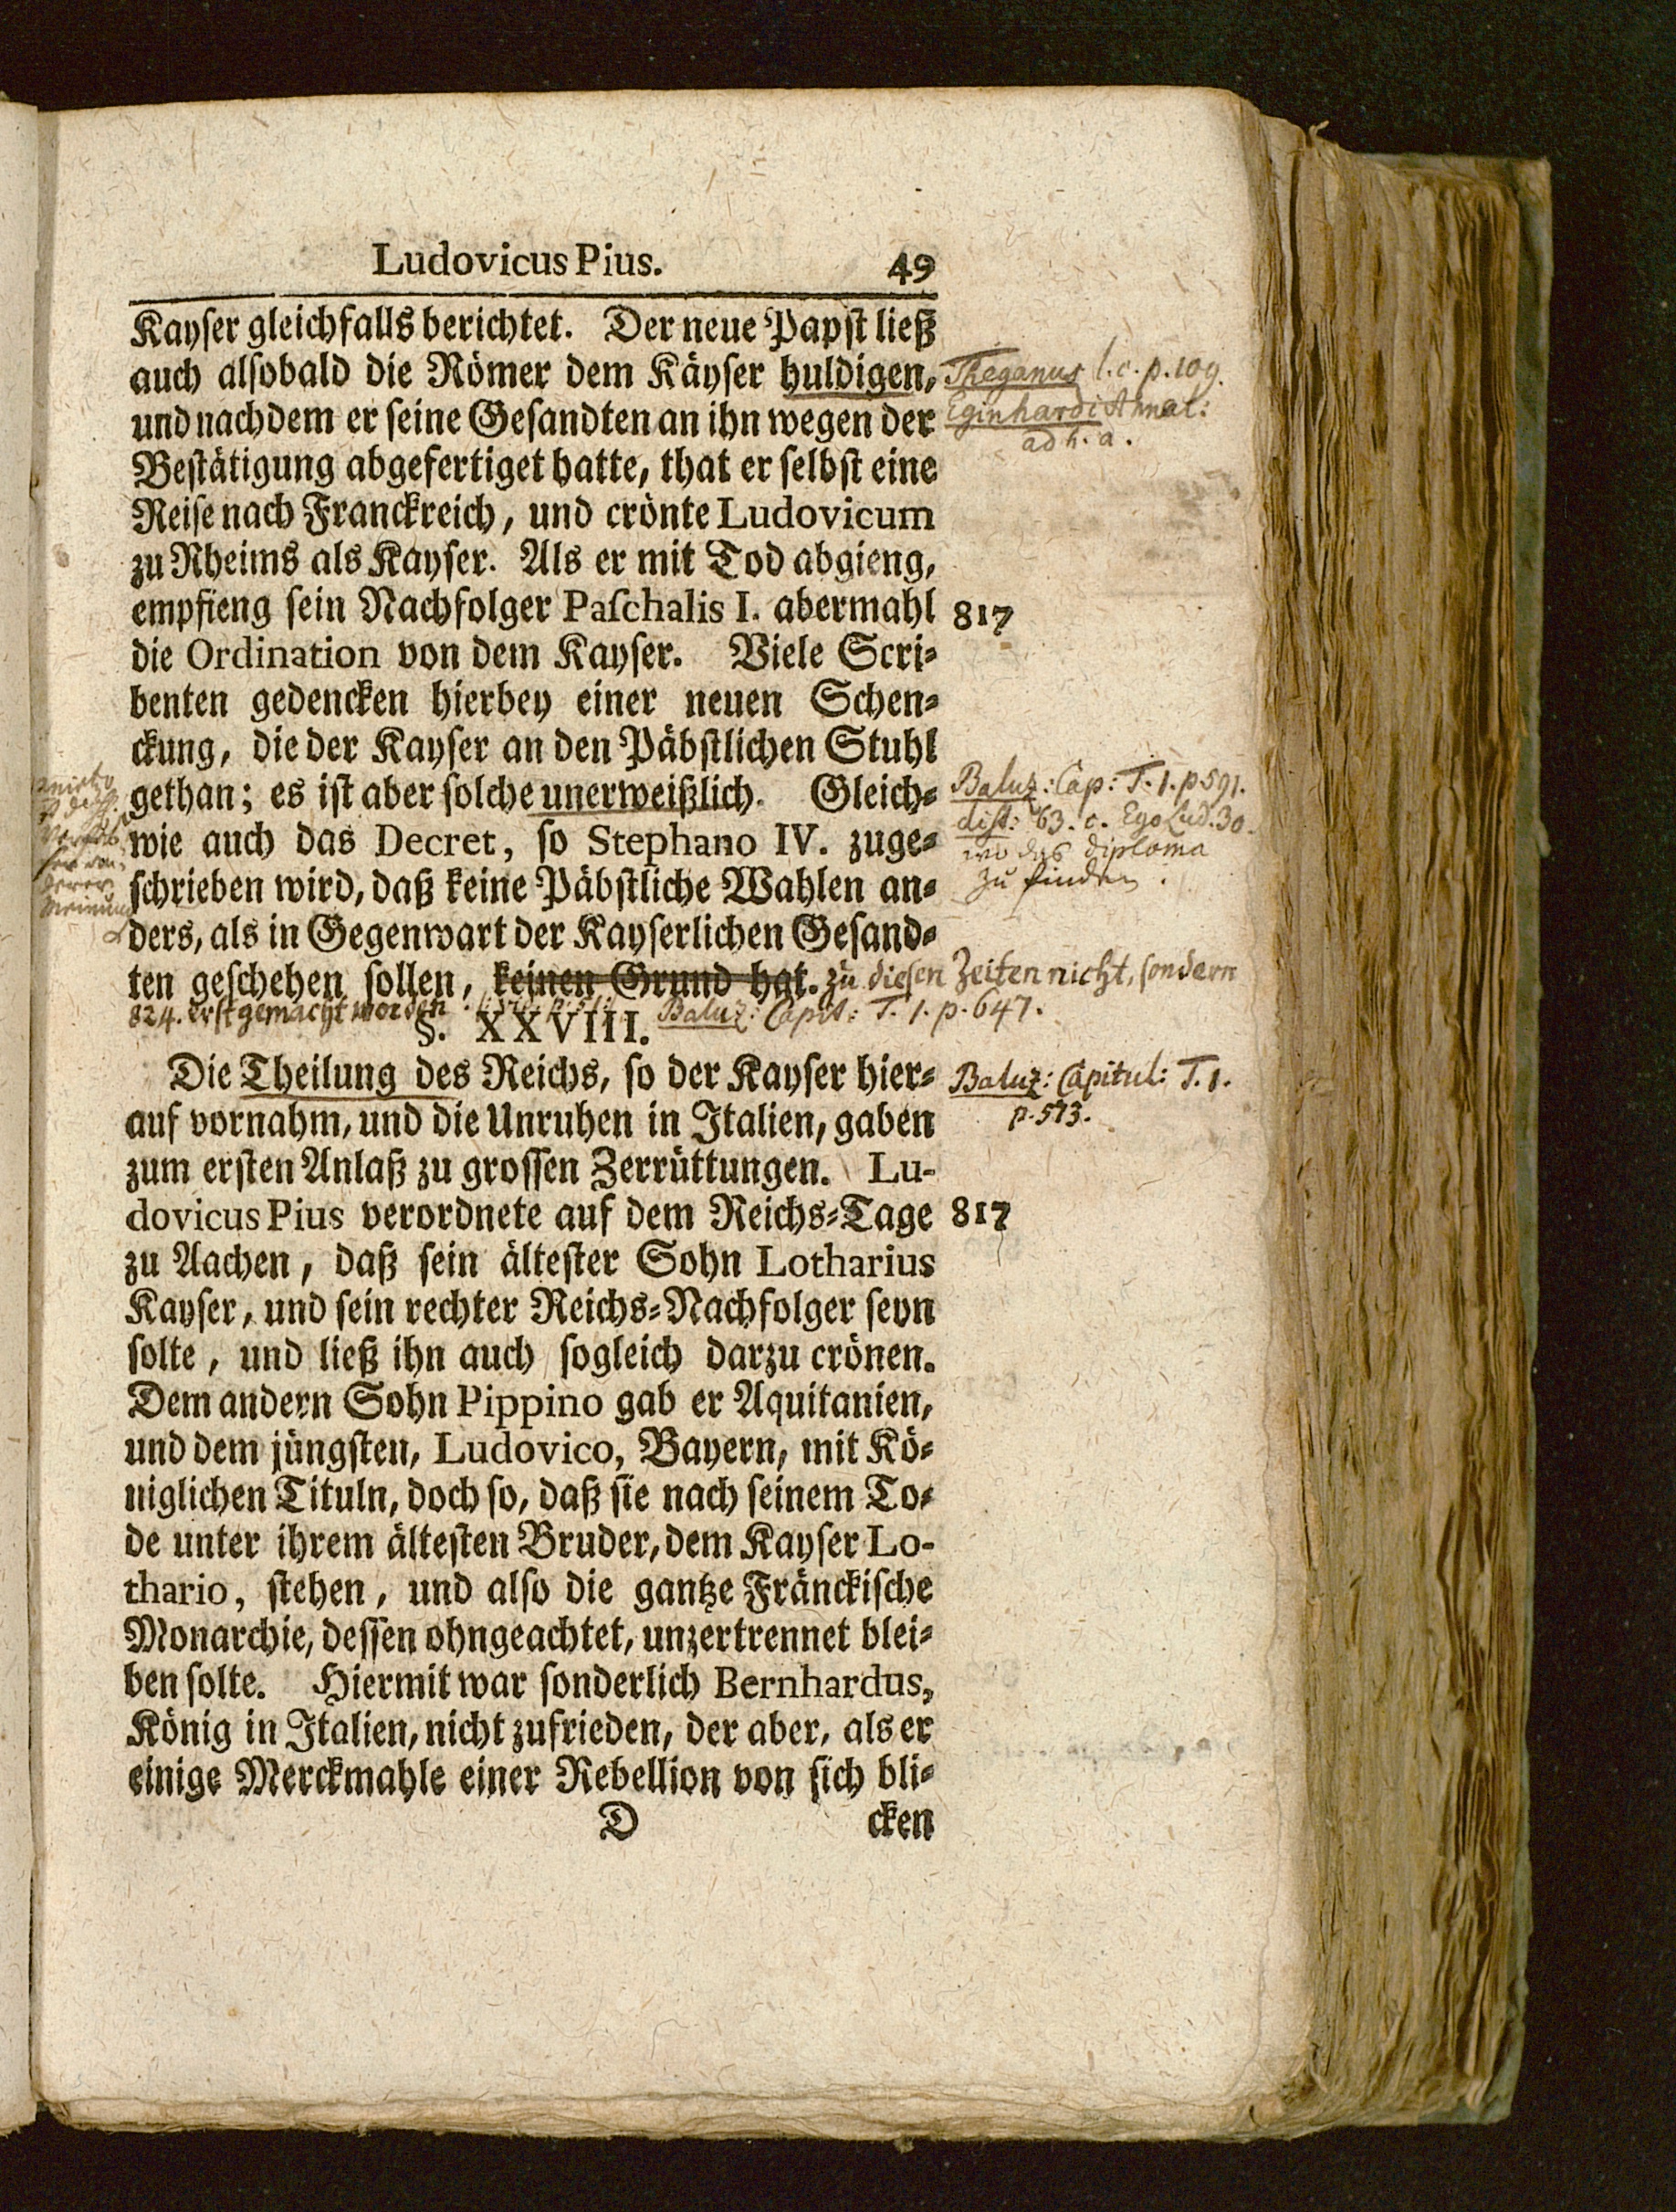 Ludovicus Pius. 49
Kayser gleichfalls berichtet. Der neue Papst ließ
auch alsobald die Römer dem Käyser huldigen,
Theganus l. c. p. 109.
und nachdem er seine Gesandten an ihn wegen der
Eginhardi Annal:
ad h. a.
Bestätigung abgefertiget hatte, that er selbst eine
Reise nach Franckreich, und crönte Ludovicum
zu Rheims als Kayser. Als er mit Tod abgieng,
empfieng sein Nachfolger Paschalis I. abermahl
817
die Ordination von dem Kayser. Viele Scri-
benten gedencken hierbey einer neuen Schen-
ckung, die der Kayser an den Päbstlichen Stuhl
gethan; es ist aber solche unerweißlich. Gleich-
Baluz: Cap: T. 1. p 591.
dist: 63. c. Ego Lud. 30.
wo das diploma
zu finden.
wie auch das Decret, so Stephano IV. zuge-
schrieben wird, daß keine Päbstliche Wahlen an-
Meinung
ders, als in Gegenwart der Kayserlichen Gesand-
ten geschehen sollen, keinen Grund hat. zu diesen Zeiten nicht, sondern
824. erst gemacht worden. Baluz: Capit: T. 1. p. 647.
§. XXVIII.
Die Theilung des Reichs, so der Kayser hier-
Baluz: Capitul: T. 1.
p. 573.
auf vornahm, und die Unruhen in Italien, gaben
zum ersten Anlaß zu grossen Zerrüttungen. Lu-
dovicus Pius verordnete auf dem Reichs-Tage
817
zu Aachen, daß sein ältester Sohn Lotharius
Kayser, und sein rechter Reichs-Nachfolger seyn
solte, und ließ ihn auch sogleich darzu crönen.
Dem andern Sohn Pippino gab er Aquitanien,
und dem jüngsten, Ludovico, Bayern, mit Kö-
niglichen Tituln, doch so, daß sie nach seinem To-
de unter ihrem ältesten Bruder, dem Kayser Lo-
thario, stehen, und also die gantze Fränckische
Monarchie, dessen ohngeachtet, unzertrennet blei-
ben solte. Hiermit war sonderlich Bernhardus,
König in Italien, nicht zufrieden, der aber, als er
einige Merckmahle einer Rebellion von sich bli-
D cken